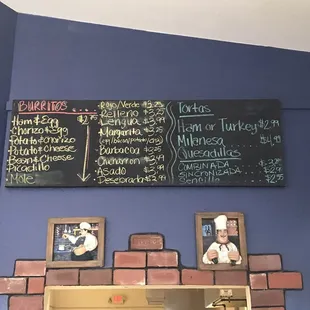 BURRITOS
Ham & Egg $2.75
Chorizo & Egg
Potato & Egg
Potato & Chorizo
Potato & Cheese
Bean & Cheese
Picadillo
Mole
Rojo/Verde $3.25
Relleno $3.25
Lengua $3.99
Margarita $3.25
Barbacoa $3.25
Chicharron $3.25
Asado $3.99
Deseborada $3.99
Tortas
Ham or Turkey $2.99
Milenesa $4.99
Quesadillas
COMBINADA $3.25
SINCRONIZADA
Sencilla